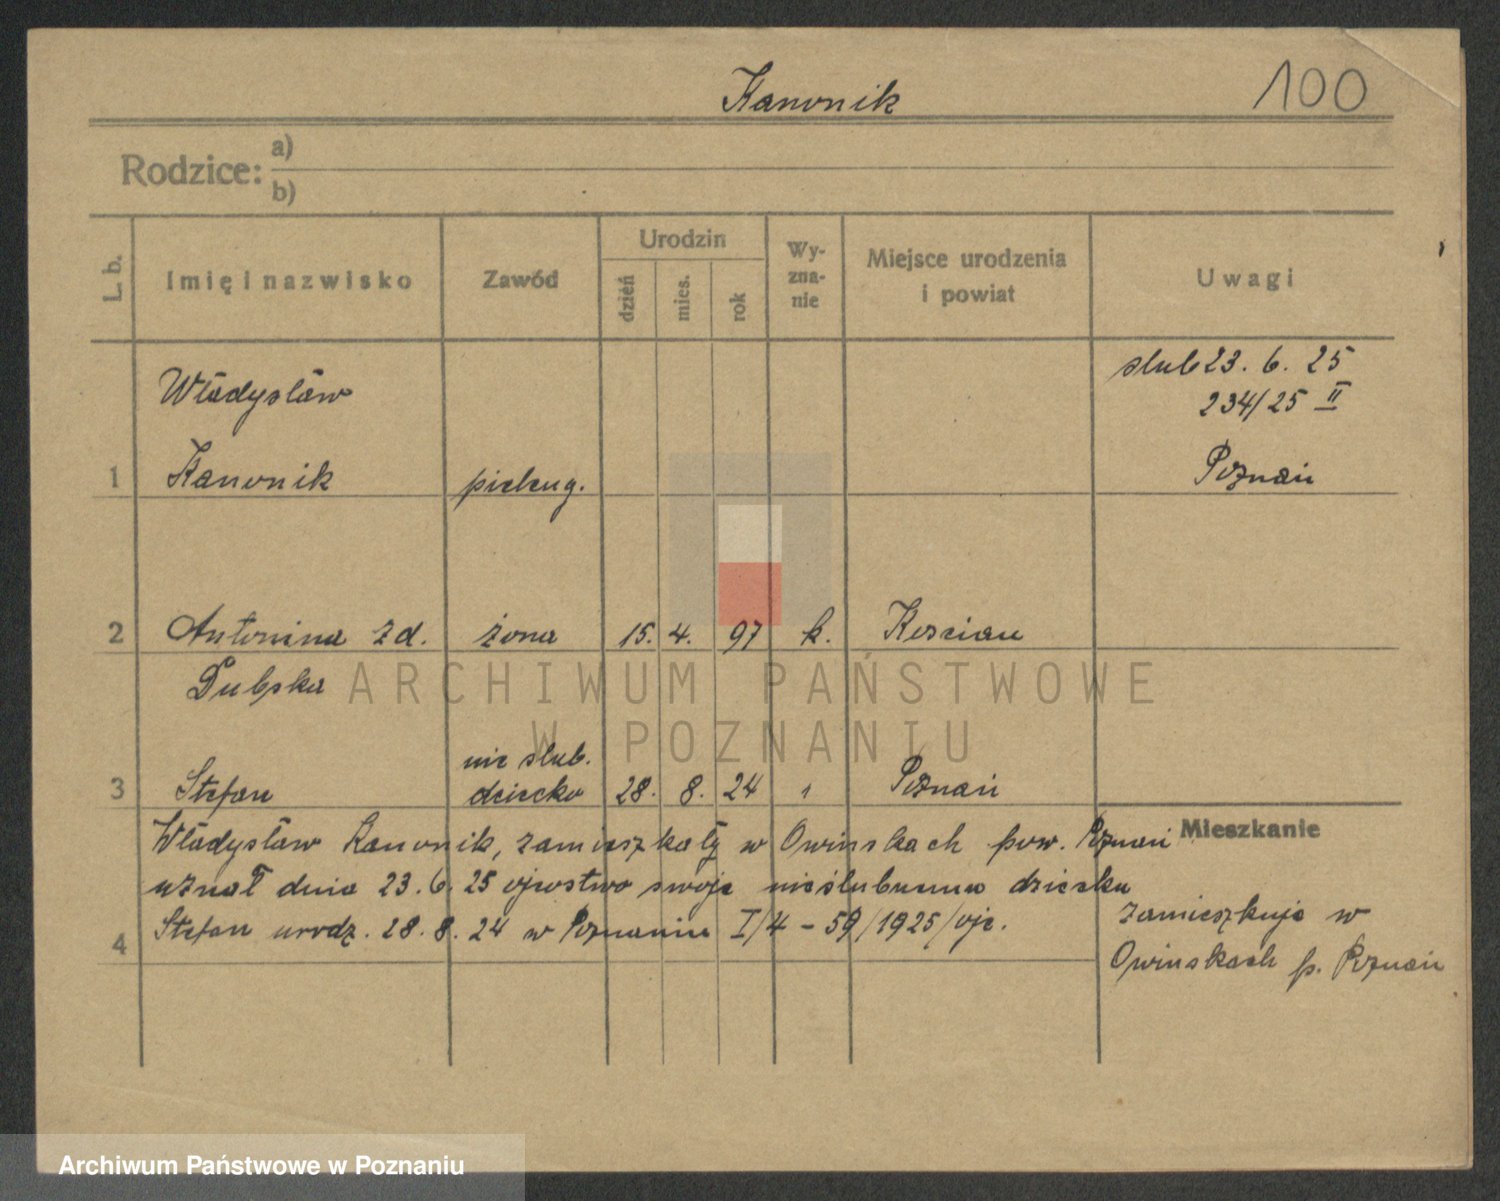 Kanonik
100
Rodzice: a)
b)
L. b.
Imię i nazwisko
Zawód
Urodzin
dzień
mies.
rok
Wy-
zna-
nie
Miejsce urodzenia
i powiat
Uwagi
ślub 23. 6. 25
234/25 II
Poznań
Władysław
1 Kanonik pielęg.
2 Antonina z d. żona 15. 4. 97 k. Kościan
Dubska
ARCHIWUM PAŃSTWOWE
W POZNANIU
nie ślub.
3 Stefan dziecko 28. 8. 24 " Poznań
Władysław Kanonik, zamieszkały w Owinskach pow. Poznań
uznał dnia 23. 6. 25 ojcostwo swoje nieślubnemu dziecku
4 Stefan urodz. 28. 8. 24 w Poznaniu I/4 - 59/1925/ojc.
Mieszkanie
zamieszkuje w
Owinskach p. Poznań
Archiwum Państwowe w Poznaniu